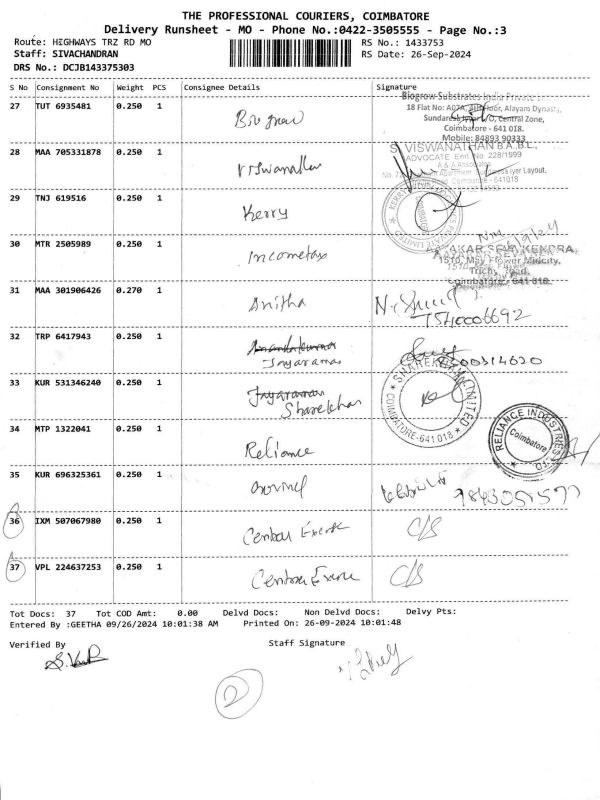 THE PROFESSIONAL COURIERS, COIMBATORE
Delivery Runsheet - MO - Phone No.:0422-3505555 - Page No.:3
Route: HIGHWAYS TRZ RD MO RS No.: 1433753
Staff: SIVACHANDRAN RS Date: 26-Sep-2024
DRS No.: DCJB143375303
S No Consignment No Weight PCS Consignee Details Signature
27 TUT 6935481 0.250 1 Biogrow
Biogrow Substrates India Private
18 Flat No: A07A, 4th Floor, Alayam Dynasty,
Sundaresa Iyer L/O, Central Zone,
Coimbatore - 641 018.
Mobile: 84893 90333
28 MAA 705331878 0.250 1 Viswanathan
S. VISWANATHAN B.A.,B.L.,
ADVOCATE Enrl No. 228/1999
A & A Associates
Iyer Layout,
Coimbatore - 641018
29 TNJ 619516 0.250 1 Kerry
COIMBATORE
30 MTR 2505989 0.250 1 Incometax
AAYAKAR SEVA KENDRA
1510, May Flower Midcity,
Trichy Road,
Coimbatore - 641 018.
31 MAA 301906426 0.270 1 Anitha
7540006692
32 TRP 6417943 0.250 1 Jayaraman
33 KUR 531346240 0.250 1 Jayaraman
Sharekhan
SHAREKHAN LIMITED
COIMBATORE-641 018
34 MTP 1322041 0.250 1 Reliance
RELIANCE INDUSTRIES LTD
Coimbatore
35 KUR 696325361 0.250 1 Govind
36 IXM 507067980 0.250 1 Central Excise C/S
37 VPL 224637253 0.250 1 Central Excise C/S
Tot Docs: 37 Tot COD Amt: 0.00 Delvd Docs: Non Delvd Docs: Delvy Pts:
Entered By :GEETHA 09/26/2024 10:01:38 AM Printed On: 26-09-2024 10:01:48
Verified By Staff Signature
2